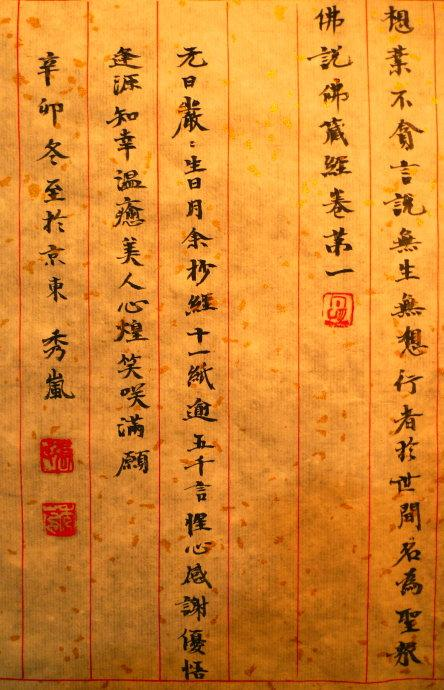 想業不貪言說無生無想行者於世間名為聖眾
佛說佛藏經卷第一
元日巖巖生日月余抄經十一紙逾五千言惺心感謝優悟
逢源知幸溫癒美人心煌笑咲滿願
辛卯冬至於京東 秀嵐